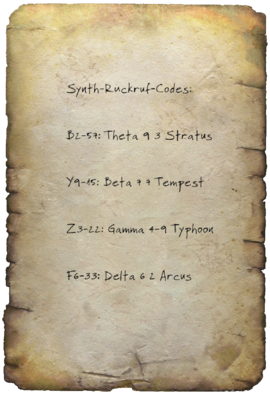 Synth-Ruckruf-Codes:
B2-57: Theta 9 3 Stratus
Y9-15: Beta 7 7 Tempest
Z3-22: Gamma 4-9 Typhoon
F6-33: Delta 6 2 Arcus